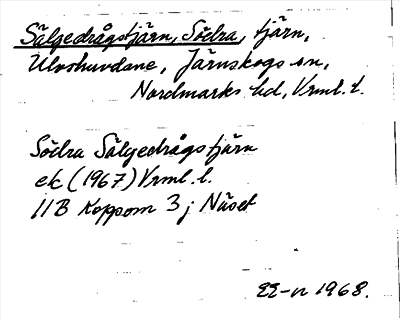 Sälgedrågstjärn, Södra, tjärn,
Ulvshuvdane, Järnskogs sn,
Nordmarks hd, Vrml. l.
Södra Sälgedrågstjärn
ek (1967) Vrml. l.
11B Koppom 3 j Näset
1968.